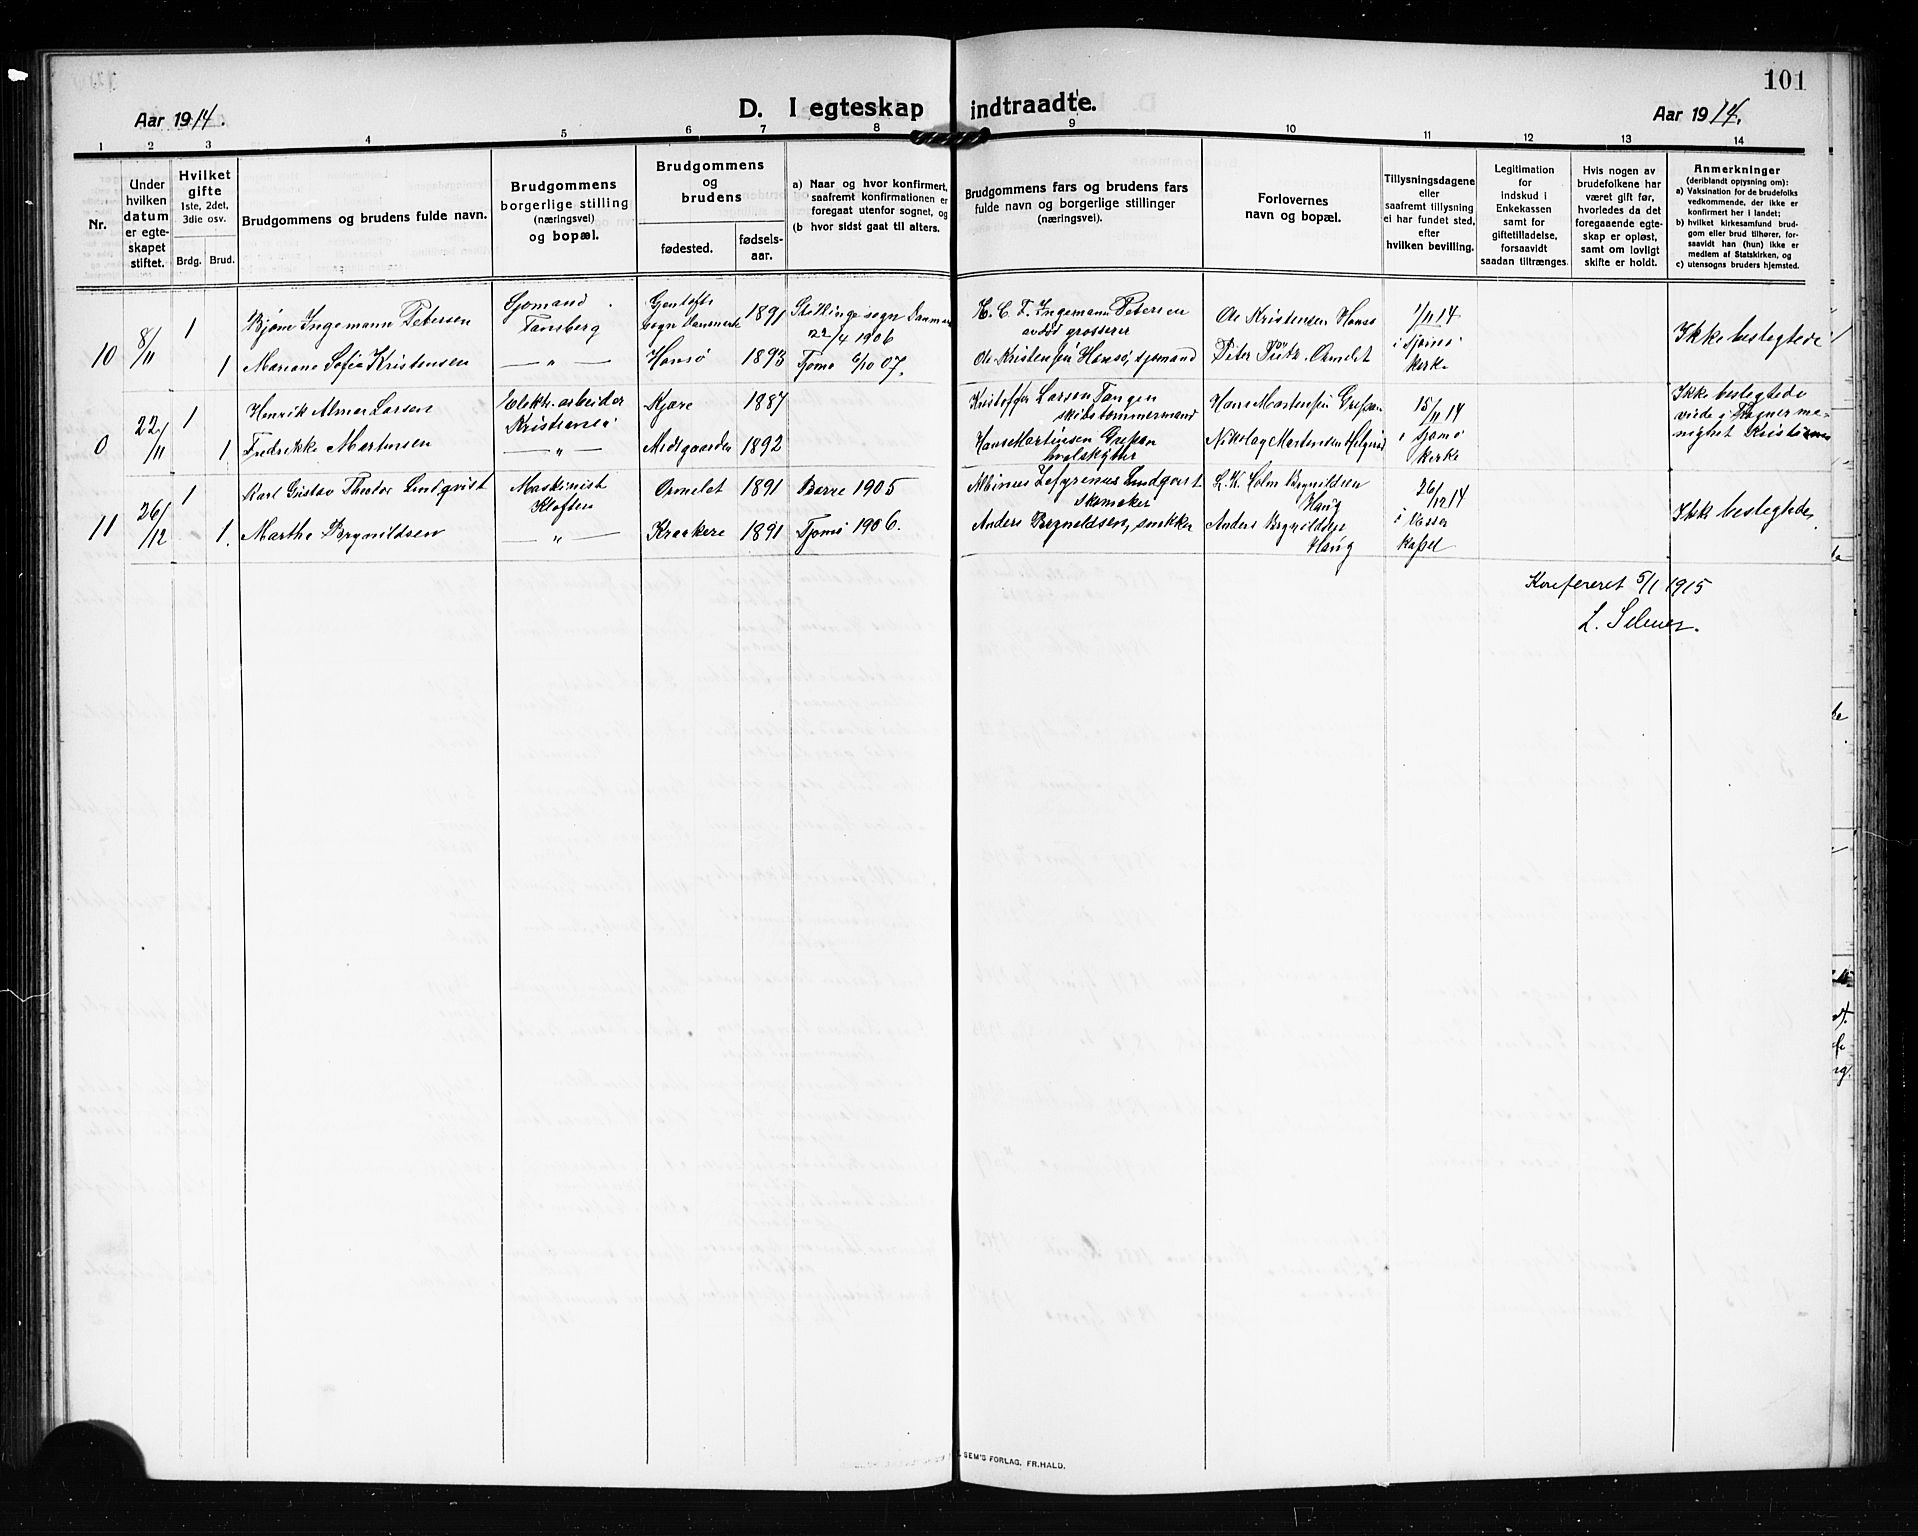 101
Aar 1914.
D. I egteskap indtraadte.
Aar 1914.
1 2 3 4 5 6 7 8 9 10 11 12 13 14
Nr.
Under hvilken datum er egteskapet stiftet.
Hvilket gifte 1ste, 2del, 3die osv.
Brdg. Brud.
Brudgommens og brudens fulde navn.
Brudgommens borgerlige stilling (næringsvei) og bopæl.
Brudgommens og brudens
fødested. fødselsaar.
a) Naar og hvor konfirmert, saafremt konfirmationen er foregaat utenfor sognet, og
(b hvor sidst gaat til alters.
Brudgommens fars og brudens fars fulde navn og borgerlige stillinger (næringsvei).
Forlovernes navn og bopæl.
Tillysningsdagene eller saafremt tillysning ei har fundet sted, efter hvilken bevilling.
Legitimation for indskud i Enkekassen samt for giftetilladelse, forsaavidt saadan tiltrænges.
Hvis nogen av brudefolkene har været gift før, hvorledes da det foregaaende egteskap er opløst, samt om lovligt skifte er holdt.
Anmerkninger
(deriblandt opiysning om):
a) Vaksination for de brudefolks vedkommende, der ikke er konfirmert her i landet;
b) hvilket kirkesamfund brudgom eller brud tilhører, forsaavidt han (hun) ikke er medlem av Statskirken, og
c) utensogns bruders hjemsted.
10 8/11 1 Bjørn Ingemann Petersen Sjømand Tønsberg Gentofte sogn Danmark 1891 sogn Danmark 22/4 1906 H. C. F. Ingemann Petersen avdød grosserer Ole Kristensen Hønsø 1/11 14
1 Mariane Sofie Kristensen — " — Hønsø 1893 Tjømø 6/10 07. Ole Kristensen Hønsø, sjømand Peter Ormelet i Tjømø kirke Ikke beslegtede
0 22/11 1 Henrik Almer Larsen Elektr. arbeider Kristiania Kjære 1887 Kristoffer Larsen Tangen skibstømmermand Hans Martinsen Grepan 15/11 14 Ikke beslegtede
1 Fredrikke Martinsen — " — Midtgaarden 1892 Hans Martinsen Grepan hvalskytter Nikolay Martinsen i Tjømø kirke
11 26/12 1 Karl Gustav Theodor Lindqvist Maskinist Kløften Ormelet 1891 Borre 1905 Albinus Zefyrenus Lindqvist skomaker L. K. Holm Brynildsen Haug 26/12 14
1. Marthe Brynildsen — " — Kraakere 1891 Tjømø 1906. Anders Brynildsen, snekker Anders Brynildsen Haug i Vasser kapel Ikke beslegtede
Konfereret 5/1 1915
L. Selmer.
SEM'S FORLAG, FR.HALD.